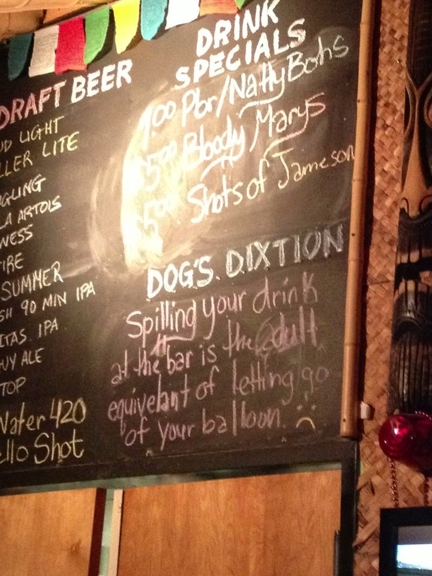 DRAFT BEER
UD LIGHT
LLER LITE
NGLING
LA ARTOIS
NESS
TIRE
SUMMER
SH 90 MIN IPA
ITAS. IPA
UY ALE
TOP
Water 420
ello Shot
DRINK
SPECIALS
1.00 Pbr/Natty Bohs
5.00 Bloody Marys
5.00 Shots of Jameson
DOG'S. DIXTION
Spilling your drink
at the bar is the adult
equivelant of letting go
of your balloon. :(